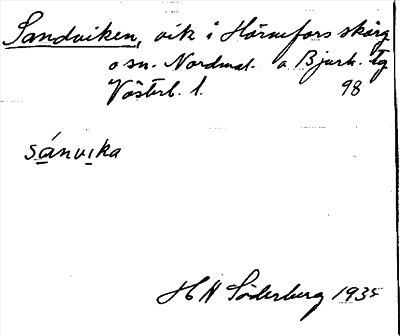 Sandviken, vik i Hörnefors skärg
o sn. Nordmal. o Bjurh. tg
Västerb. l. 98
sánvika
H N Söderberg 1935